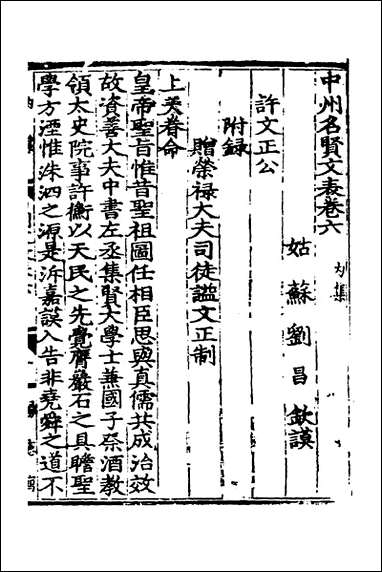 中州名賢文表卷六 内集
姑蘇劉昌欽謨
許文正公
附録
贈榮禄大夫司徒謚文正制
上天眷命
皇帝聖旨惟昔聖祖圖任相臣思與真儒共成治效
故資善大夫中書左丞集賢大學士兼國子祭酒教
領太史院事許衡以天民之先覺膺巖石之具瞻聖
學方湮惟洙泗之源是泝嘉謨入告非堯舜之道不